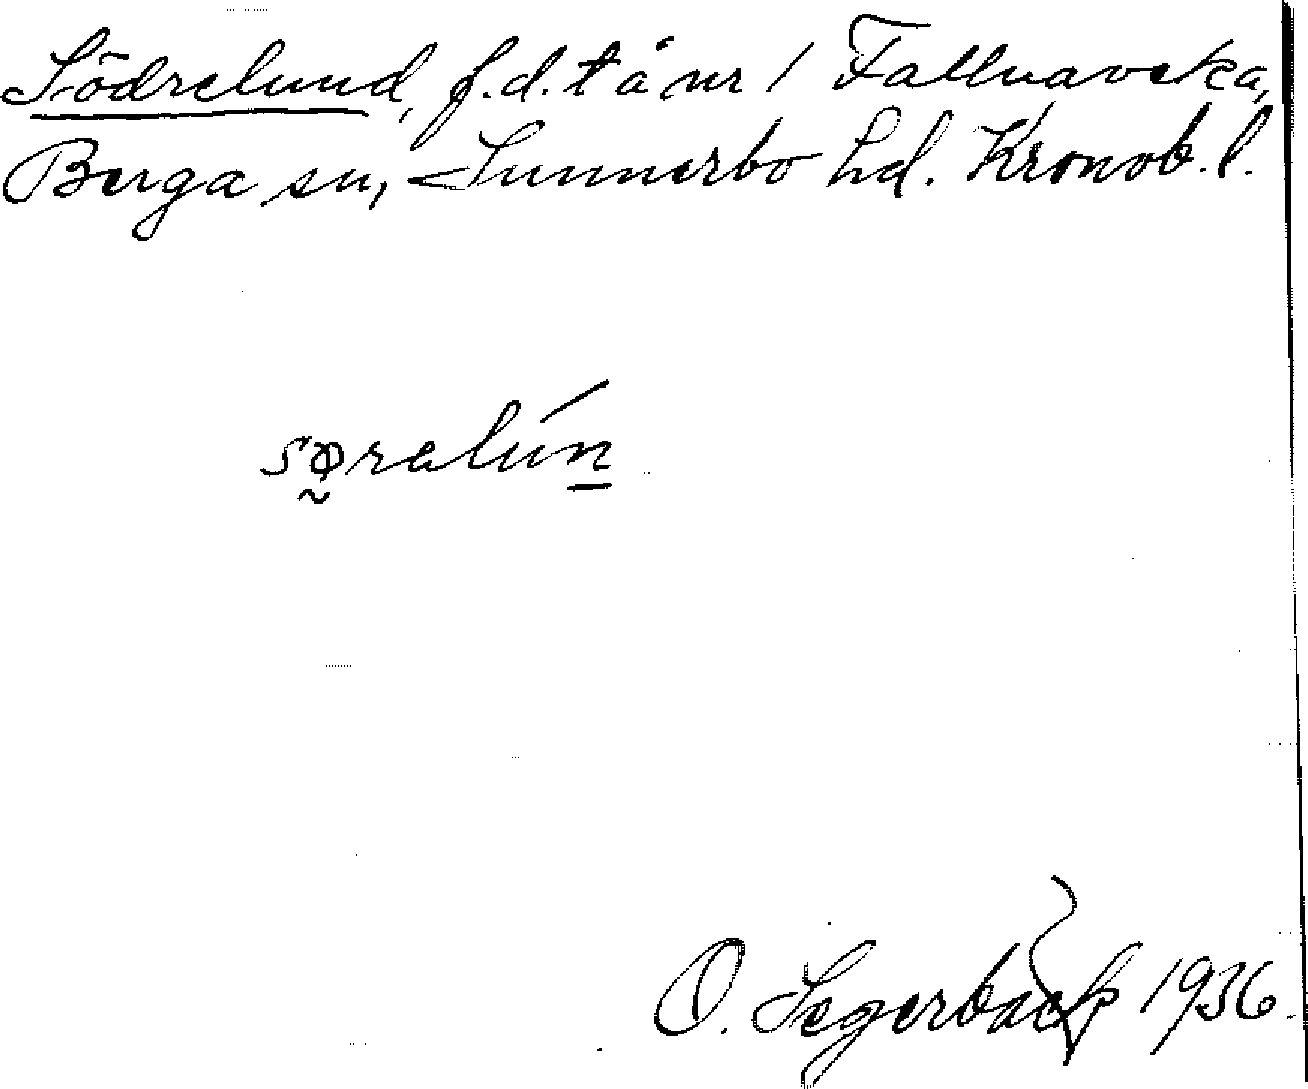 Södrelund, f.d. t å nr 1 Fallnaveka,
Berga sn, Sunnerbo hd. Kronob. l.
søralún
O. Segerbäck 1936